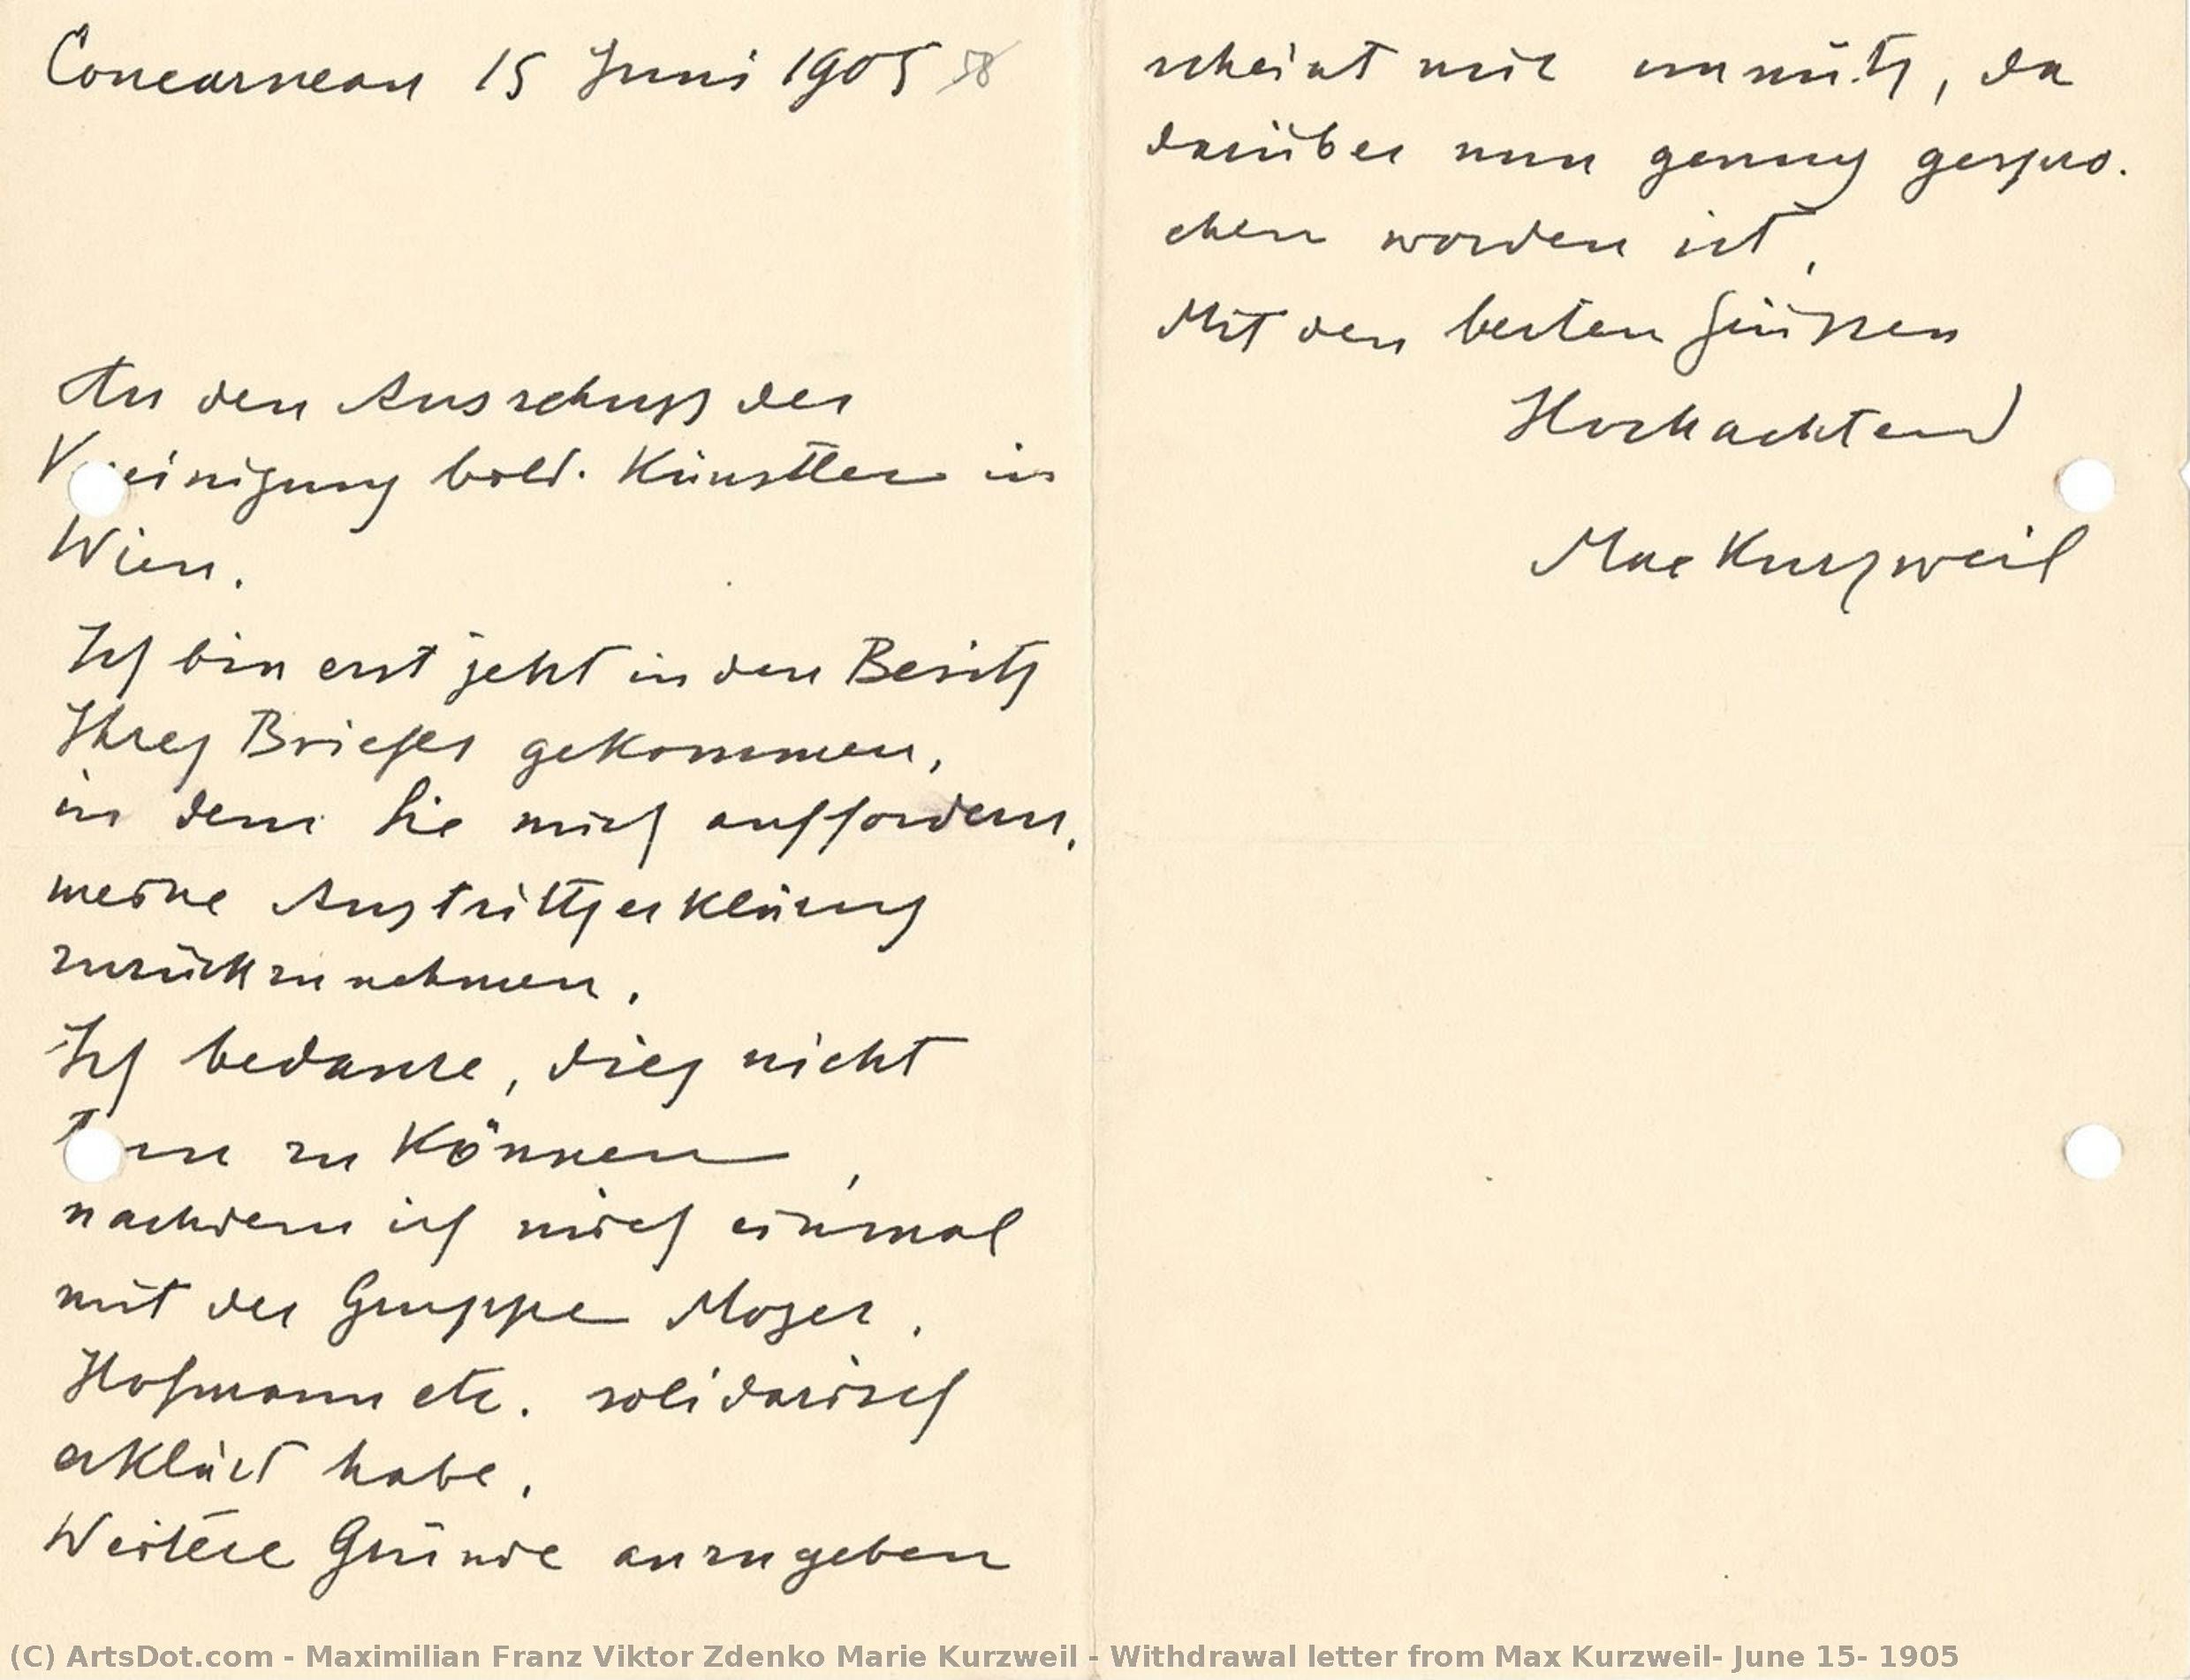 Concarneau 15 Juni 1905
An den Ausschuss der
Vereinigung bild. Künstler in
Wien.
Ich bin erst jetzt in den Besitz
Ihres Briefes gekommen,
in dem Sie mich auffordern,
meine Austrittserklärung
zurückzunehmen.
Ich bedaure, dies nicht
tun zu können,
nachdem ich mich einmal
mit der Gruppe Moser,
Hofmann etc. solidarisch
erklärt habe.
Weitere Gründe anzugeben
scheint mir unnütz, da
darüber nun genug gespro-
chen worden ist.
Mit den besten Grüssen
Hochachtend
Max Kurzweil
(C) ArtsDot.com - Maximilian Franz Viktor Zdenko Marie Kurzweil - Withdrawal letter from Max Kurzweil- June 15- 1905